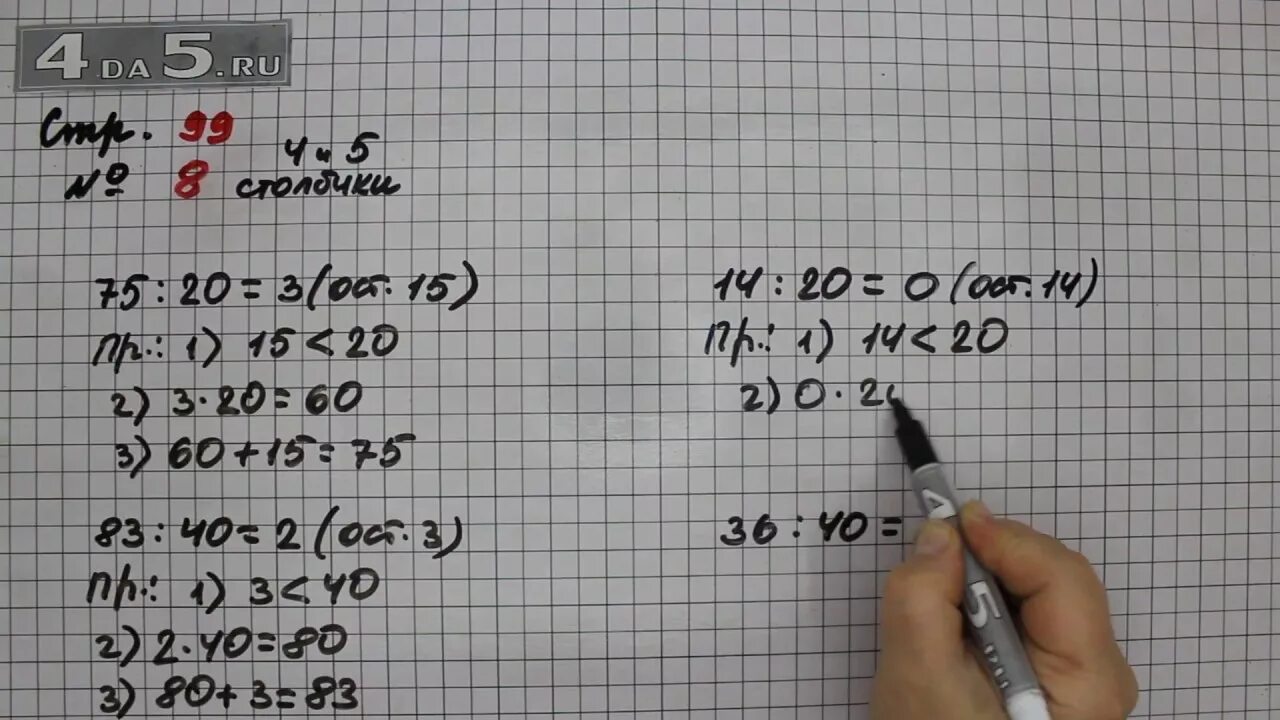 4DA5.RU
Стр. 99
№ 8 4 и 5 столбики
75 : 20 = 3 (ост. 15)
Пр.: 1) 15 < 20
2) 3 · 20 = 60
3) 60 + 15 = 75
83 : 40 = 2 (ост. 3)
Пр.: 1) 3 < 40
2) 2 · 40 = 80
3) 80 + 3 = 83
14 : 20 = 0 (ост. 14)
Пр.: 1) 14 < 20
2) 0 · 2
36 : 40 =